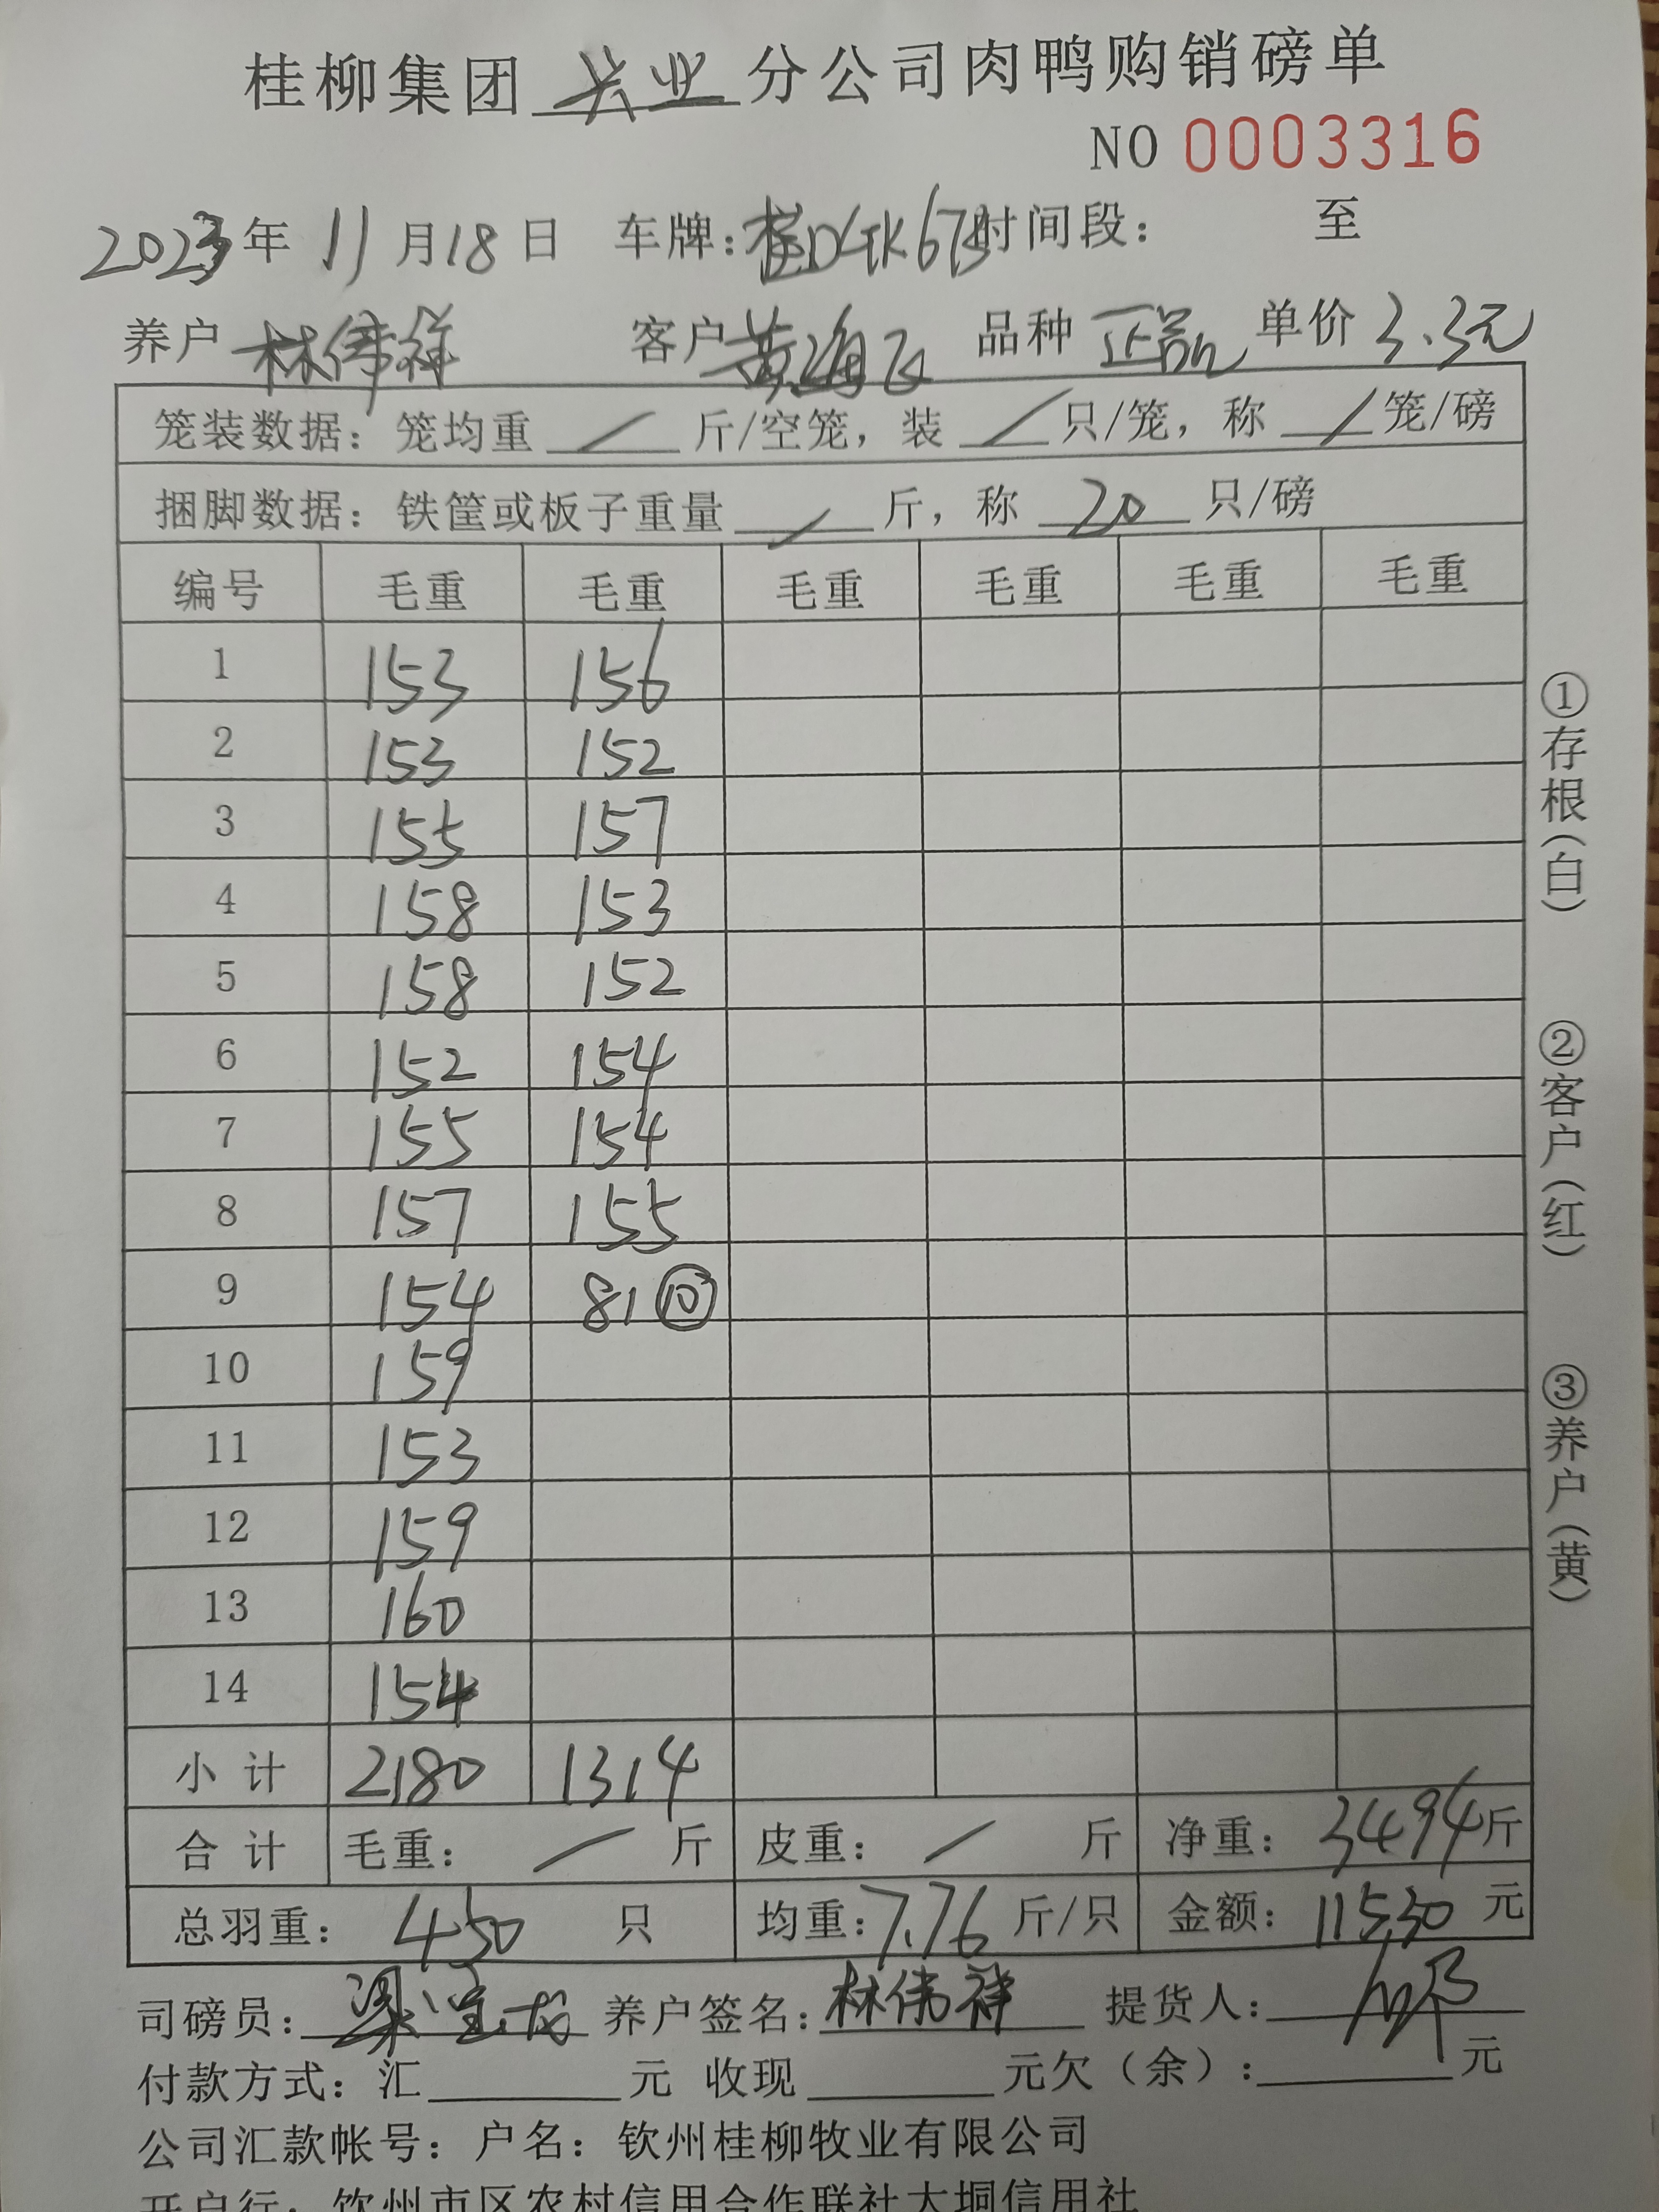 桂柳集团 兴业 分公司肉鸭购销磅单
NO 0003316
2023年 11月18日 车牌: 时间段: 至
养户 林伟祥 客户 黄海飞 品种 正品 单价 3.3元
笼装数据: 笼均重 / 斤/空笼, 装 / 只/笼, 称 / 笼/磅
捆脚数据: 铁筐或板子重量 / 斤, 称 20 只/磅
编号 毛重 毛重 毛重 毛重 毛重 毛重
1 153 156
2 153 152
3 155 157
4 158 153
5 158 152
6 152 154
7 155 154
8 157 155
9 154 81 ⑩
10 159
11 153
12 159
13 160
14 154
小计 2180 1314
合计 毛重: / 斤 皮重: / 斤 净重: 3494斤
总羽重: 450 只 均重: 7.76 斤/只 金额: 11530 元
司磅员: 养户签名: 林伟祥 提货人:
付款方式: 汇 元 收现 元欠(余): 元
公司汇款帐号: 户名: 钦州桂柳牧业有限公司
开户行: 钦州市区农村信用合作联社大垌信用社
①存根(白)
②客户(红)
③养户(黄)